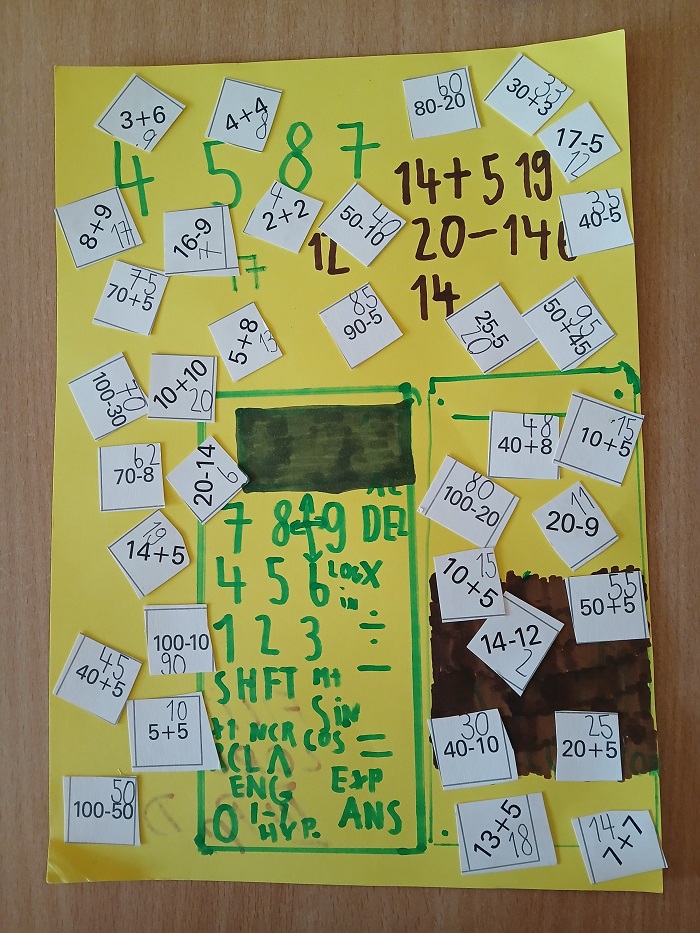 3+6
9
4+4
8
80-20
60
30+3
33
17-5
12
4 5 8 7
14+5 19
8+9
17
16-9
2+2
4
50-10
40
12
20-14
40-5
35
17
14
70+5
75
5+8
13
90-5
85
25-5
20
50+45
95
100-30
70
10+10
20
70-8
62
20-14
6
40+8
48
10+5
15
100-20
80
20-9
11
7 8 9 DEL
14+5
19
4 5 6 LOG X
in
10+5
15
50+5
55
1 2 3 ÷
−
14-12
2
100-10
90
40+5
45
SHFT M+
SiN
5+5
10
NCR COS =
40-10
30
20+5
25
ENG EXP
100-50
50
0 HYP. ANS
13+5
18
7+7
14